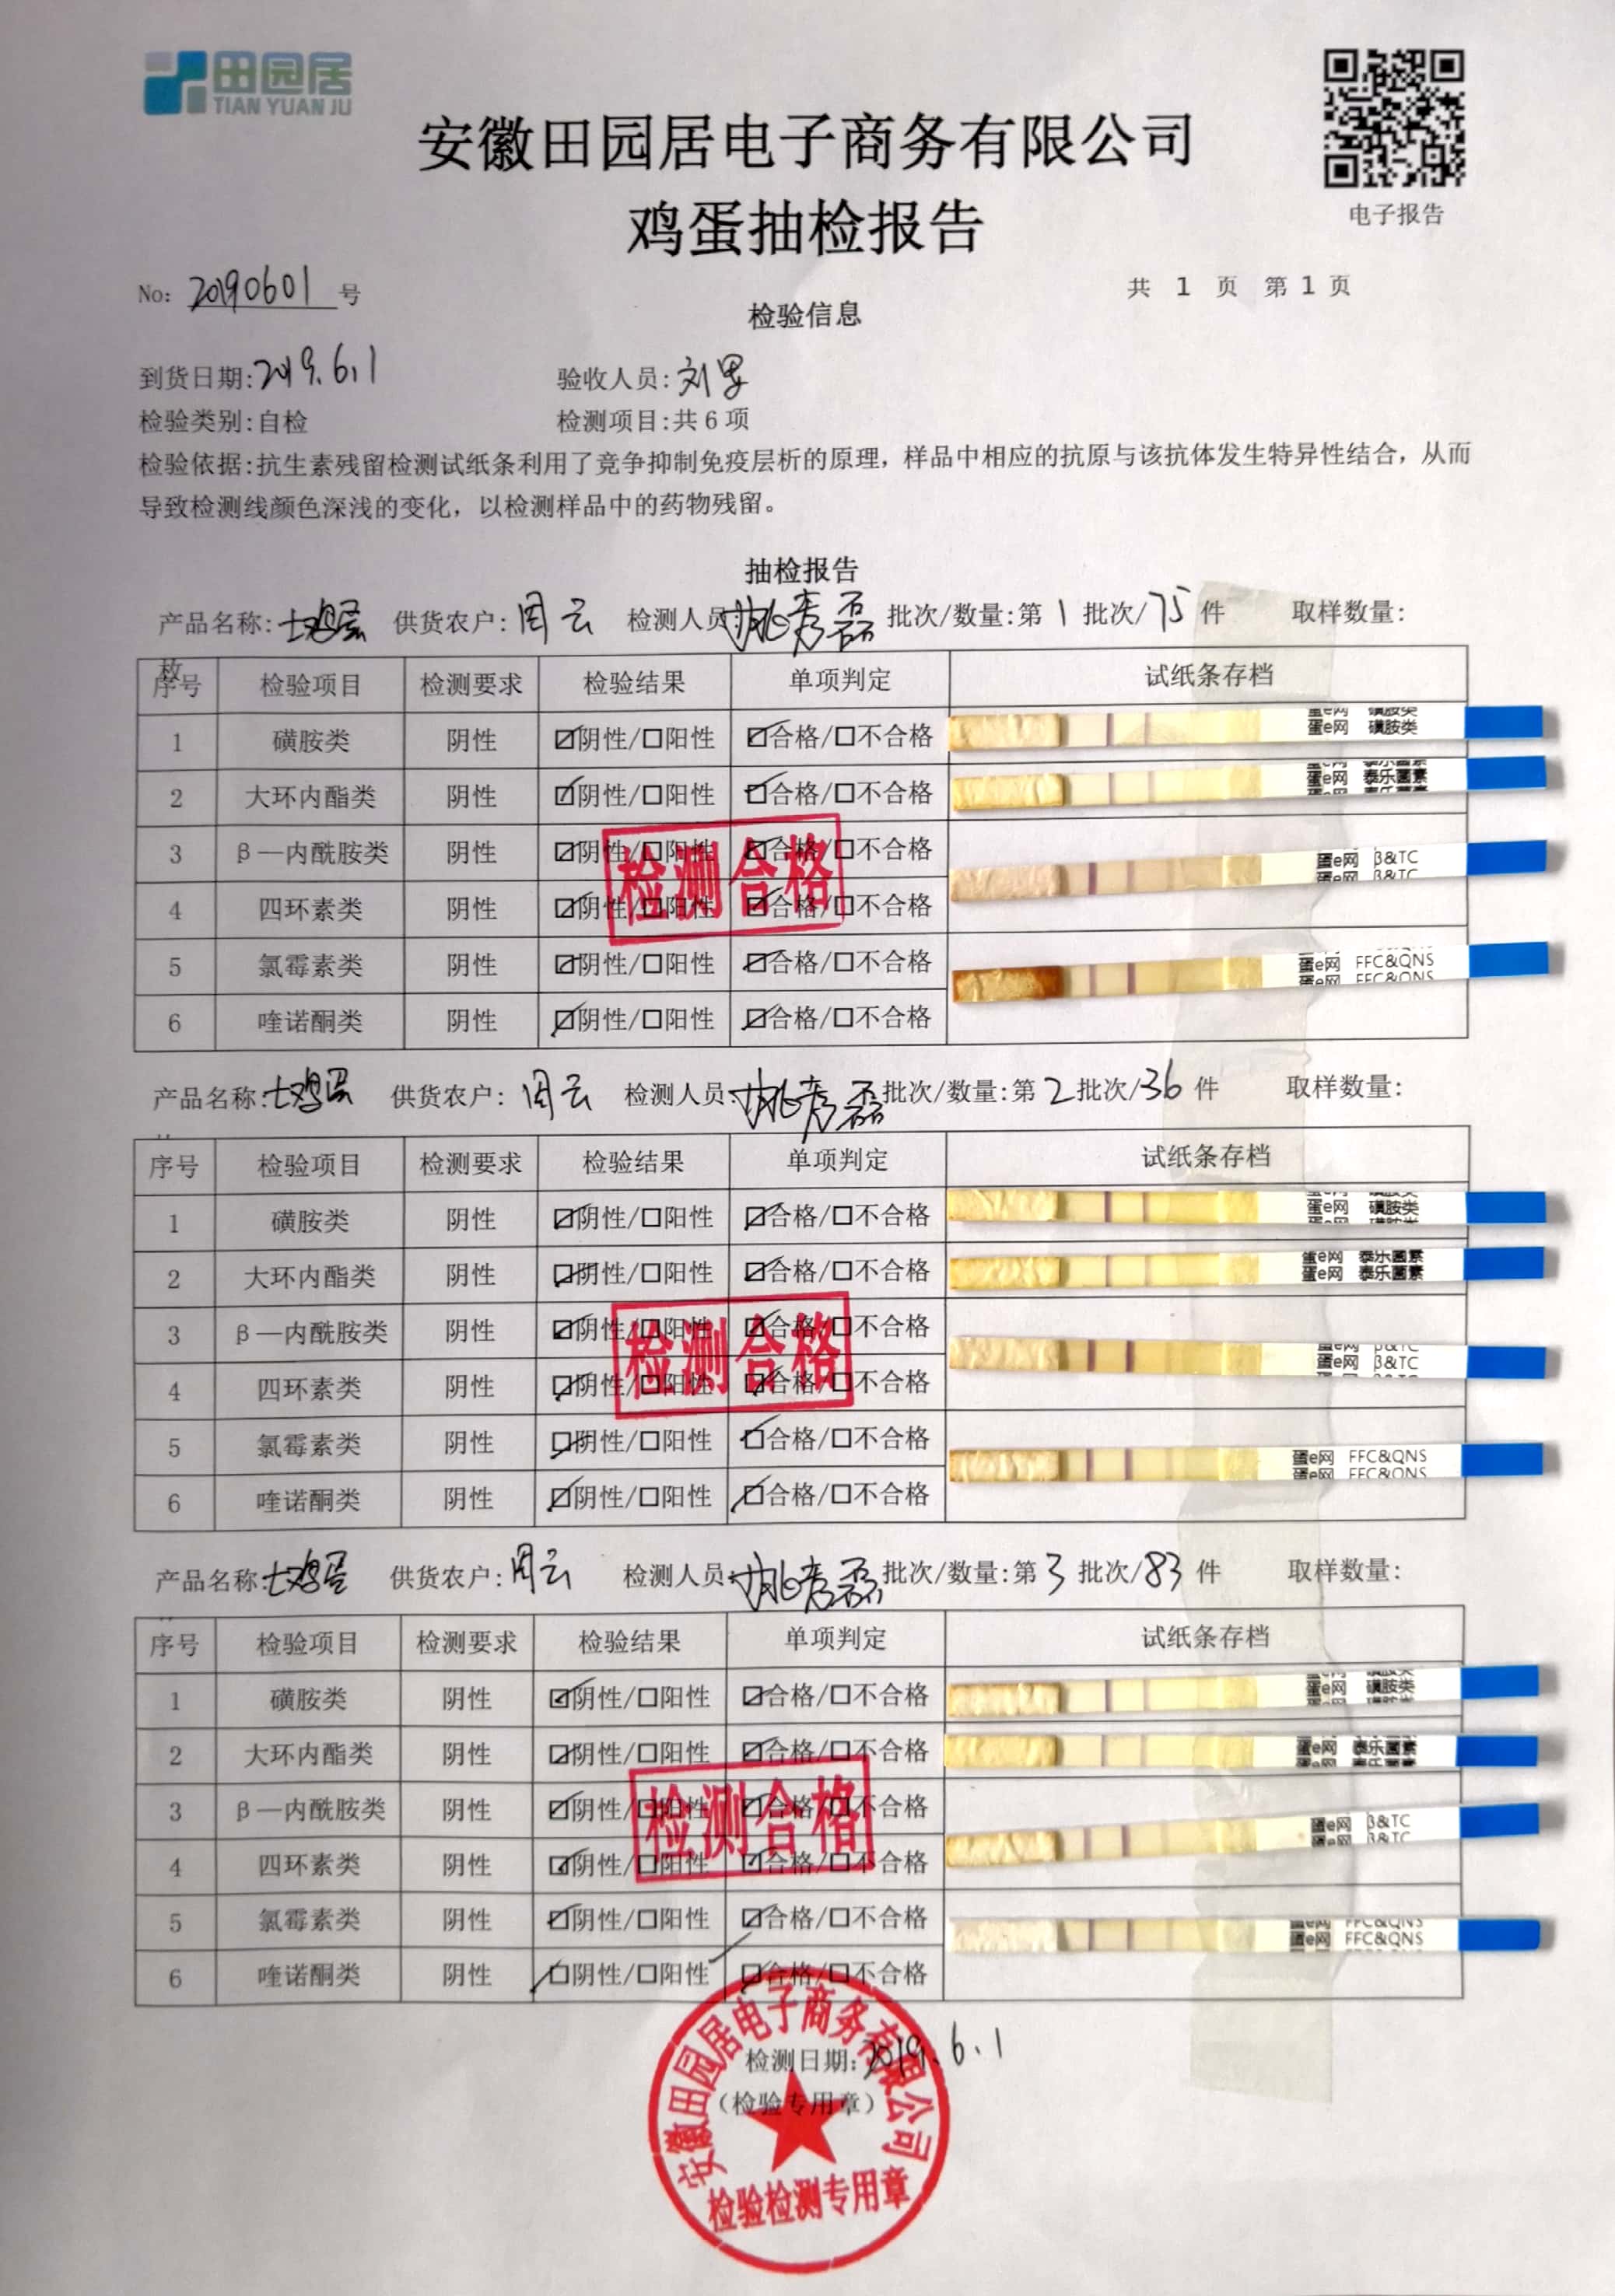 田园居
TIAN YUAN JU
安徽田园居电子商务有限公司
鸡蛋抽检报告
电子报告
No: 20190601 号
共 1 页 第 1 页
检验信息
到货日期:2019.6.1 验收人员:刘
检验类别:自检 检测项目:共 6 项
检验依据:抗生素残留检测试纸条利用了竞争抑制免疫层析的原理，样品中相应的抗原与该抗体发生特异性结合，从而
导致检测线颜色深浅的变化，以检测样品中的药物残留。
抽检报告
产品名称:土鸡蛋 供货农户:周云 检测人员: 批次/数量:第 1 批次/75 件 取样数量:
枚
序号 检验项目 检测要求 检验结果 单项判定 试纸条存档
1 磺胺类 阴性 ☑阴性/□阳性 ☑合格/□不合格 蛋e网 磺胺类
2 大环内酯类 阴性 ☑阴性/□阳性 ☑合格/□不合格 蛋e网 泰乐菌素
3 β—内酰胺类 阴性 ☑阴性/□阳性 ☑合格/□不合格 蛋e网 β&TC
检测合格
4 四环素类 阴性 ☑阴性/□阳性 ☑合格/□不合格
5 氯霉素类 阴性 ☑阴性/□阳性 ☑合格/□不合格 蛋e网 FFC&QNS
6 喹诺酮类 阴性 ☑阴性/□阳性 ☑合格/□不合格
产品名称:土鸡蛋 供货农户:周云 检测人员: 批次/数量:第 2 批次/36 件 取样数量:
序号 检验项目 检测要求 检验结果 单项判定 试纸条存档
1 磺胺类 阴性 ☑阴性/□阳性 ☑合格/□不合格 蛋e网 磺胺类
2 大环内酯类 阴性 ☑阴性/□阳性 ☑合格/□不合格 蛋e网 泰乐菌素
3 β—内酰胺类 阴性 ☑阴性/□阳性 ☑合格/□不合格 蛋e网 β&TC
检测合格
4 四环素类 阴性 ☑阴性/□阳性 ☑合格/□不合格
5 氯霉素类 阴性 ☑阴性/□阳性 ☑合格/□不合格 蛋e网 FFC&QNS
6 喹诺酮类 阴性 ☑阴性/□阳性 ☑合格/□不合格
产品名称:土鸡蛋 供货农户:周云 检测人员: 批次/数量:第 3 批次/83 件 取样数量:
序号 检验项目 检测要求 检验结果 单项判定 试纸条存档
1 磺胺类 阴性 ☑阴性/□阳性 ☑合格/□不合格 蛋e网 磺胺类
2 大环内酯类 阴性 ☑阴性/□阳性 ☑合格/□不合格 蛋e网 泰乐菌素
3 β—内酰胺类 阴性 ☑阴性/□阳性 ☑合格/□不合格 蛋e网 β&TC
检测合格
4 四环素类 阴性 ☑阴性/□阳性 ☑合格/□不合格
5 氯霉素类 阴性 ☑阴性/□阳性 ☑合格/□不合格 蛋e网 FFC&QNS
6 喹诺酮类 阴性 ☑阴性/□阳性 ☑合格/□不合格
检测日期:2019.6.1
（检验专用章）
安徽田园居电子商务有限公司
检验检测专用章